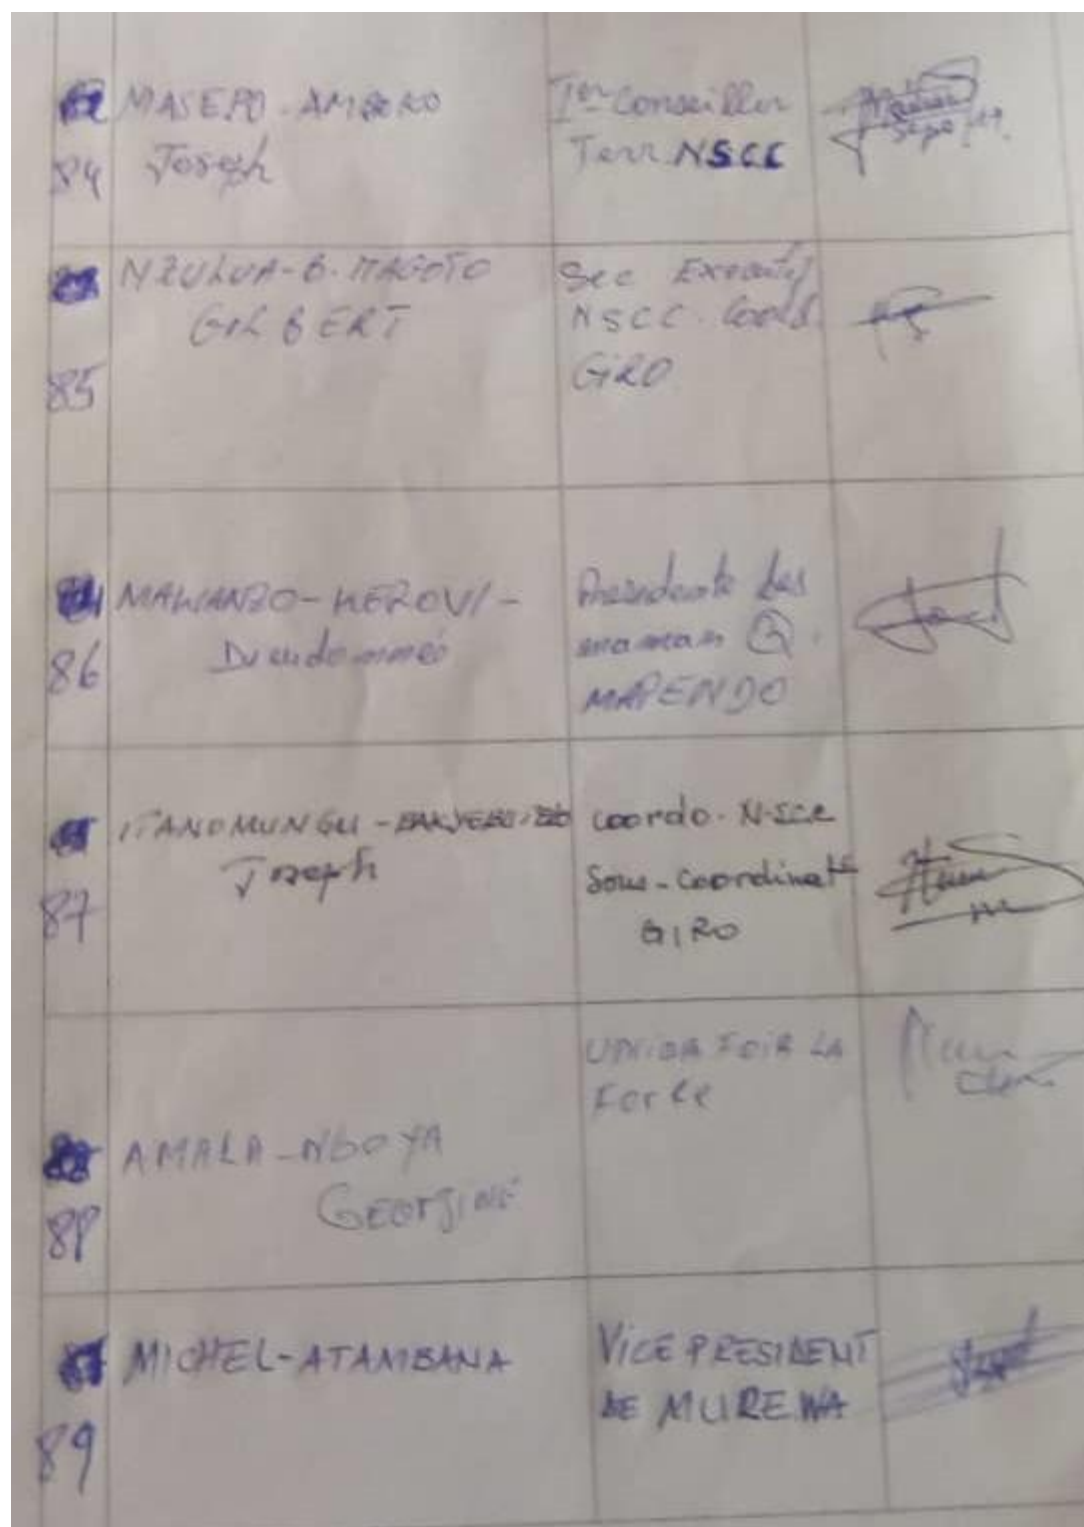 MASEPO-AMBOKO
Joseph
84
1er Conseiller
Terr NSCC
NZULUA-B-MAGOTO
GILBERT
85
Sec Executif
NSCC. Coord.
GIRO
MAWANZO-KEROVI-
Dieudonnée
86
Presidente des
maman Q.
MAPENDO
ITANOMUNGU-
Joseph
87
Coordo. N-SCC
Sous-Coordinat
GIRO
AMALA-NGOYA
GEORJINE
88
LA
Force
MICHEL-ATAMBANA
89
VICE PRESIDENT
DE MUREWA